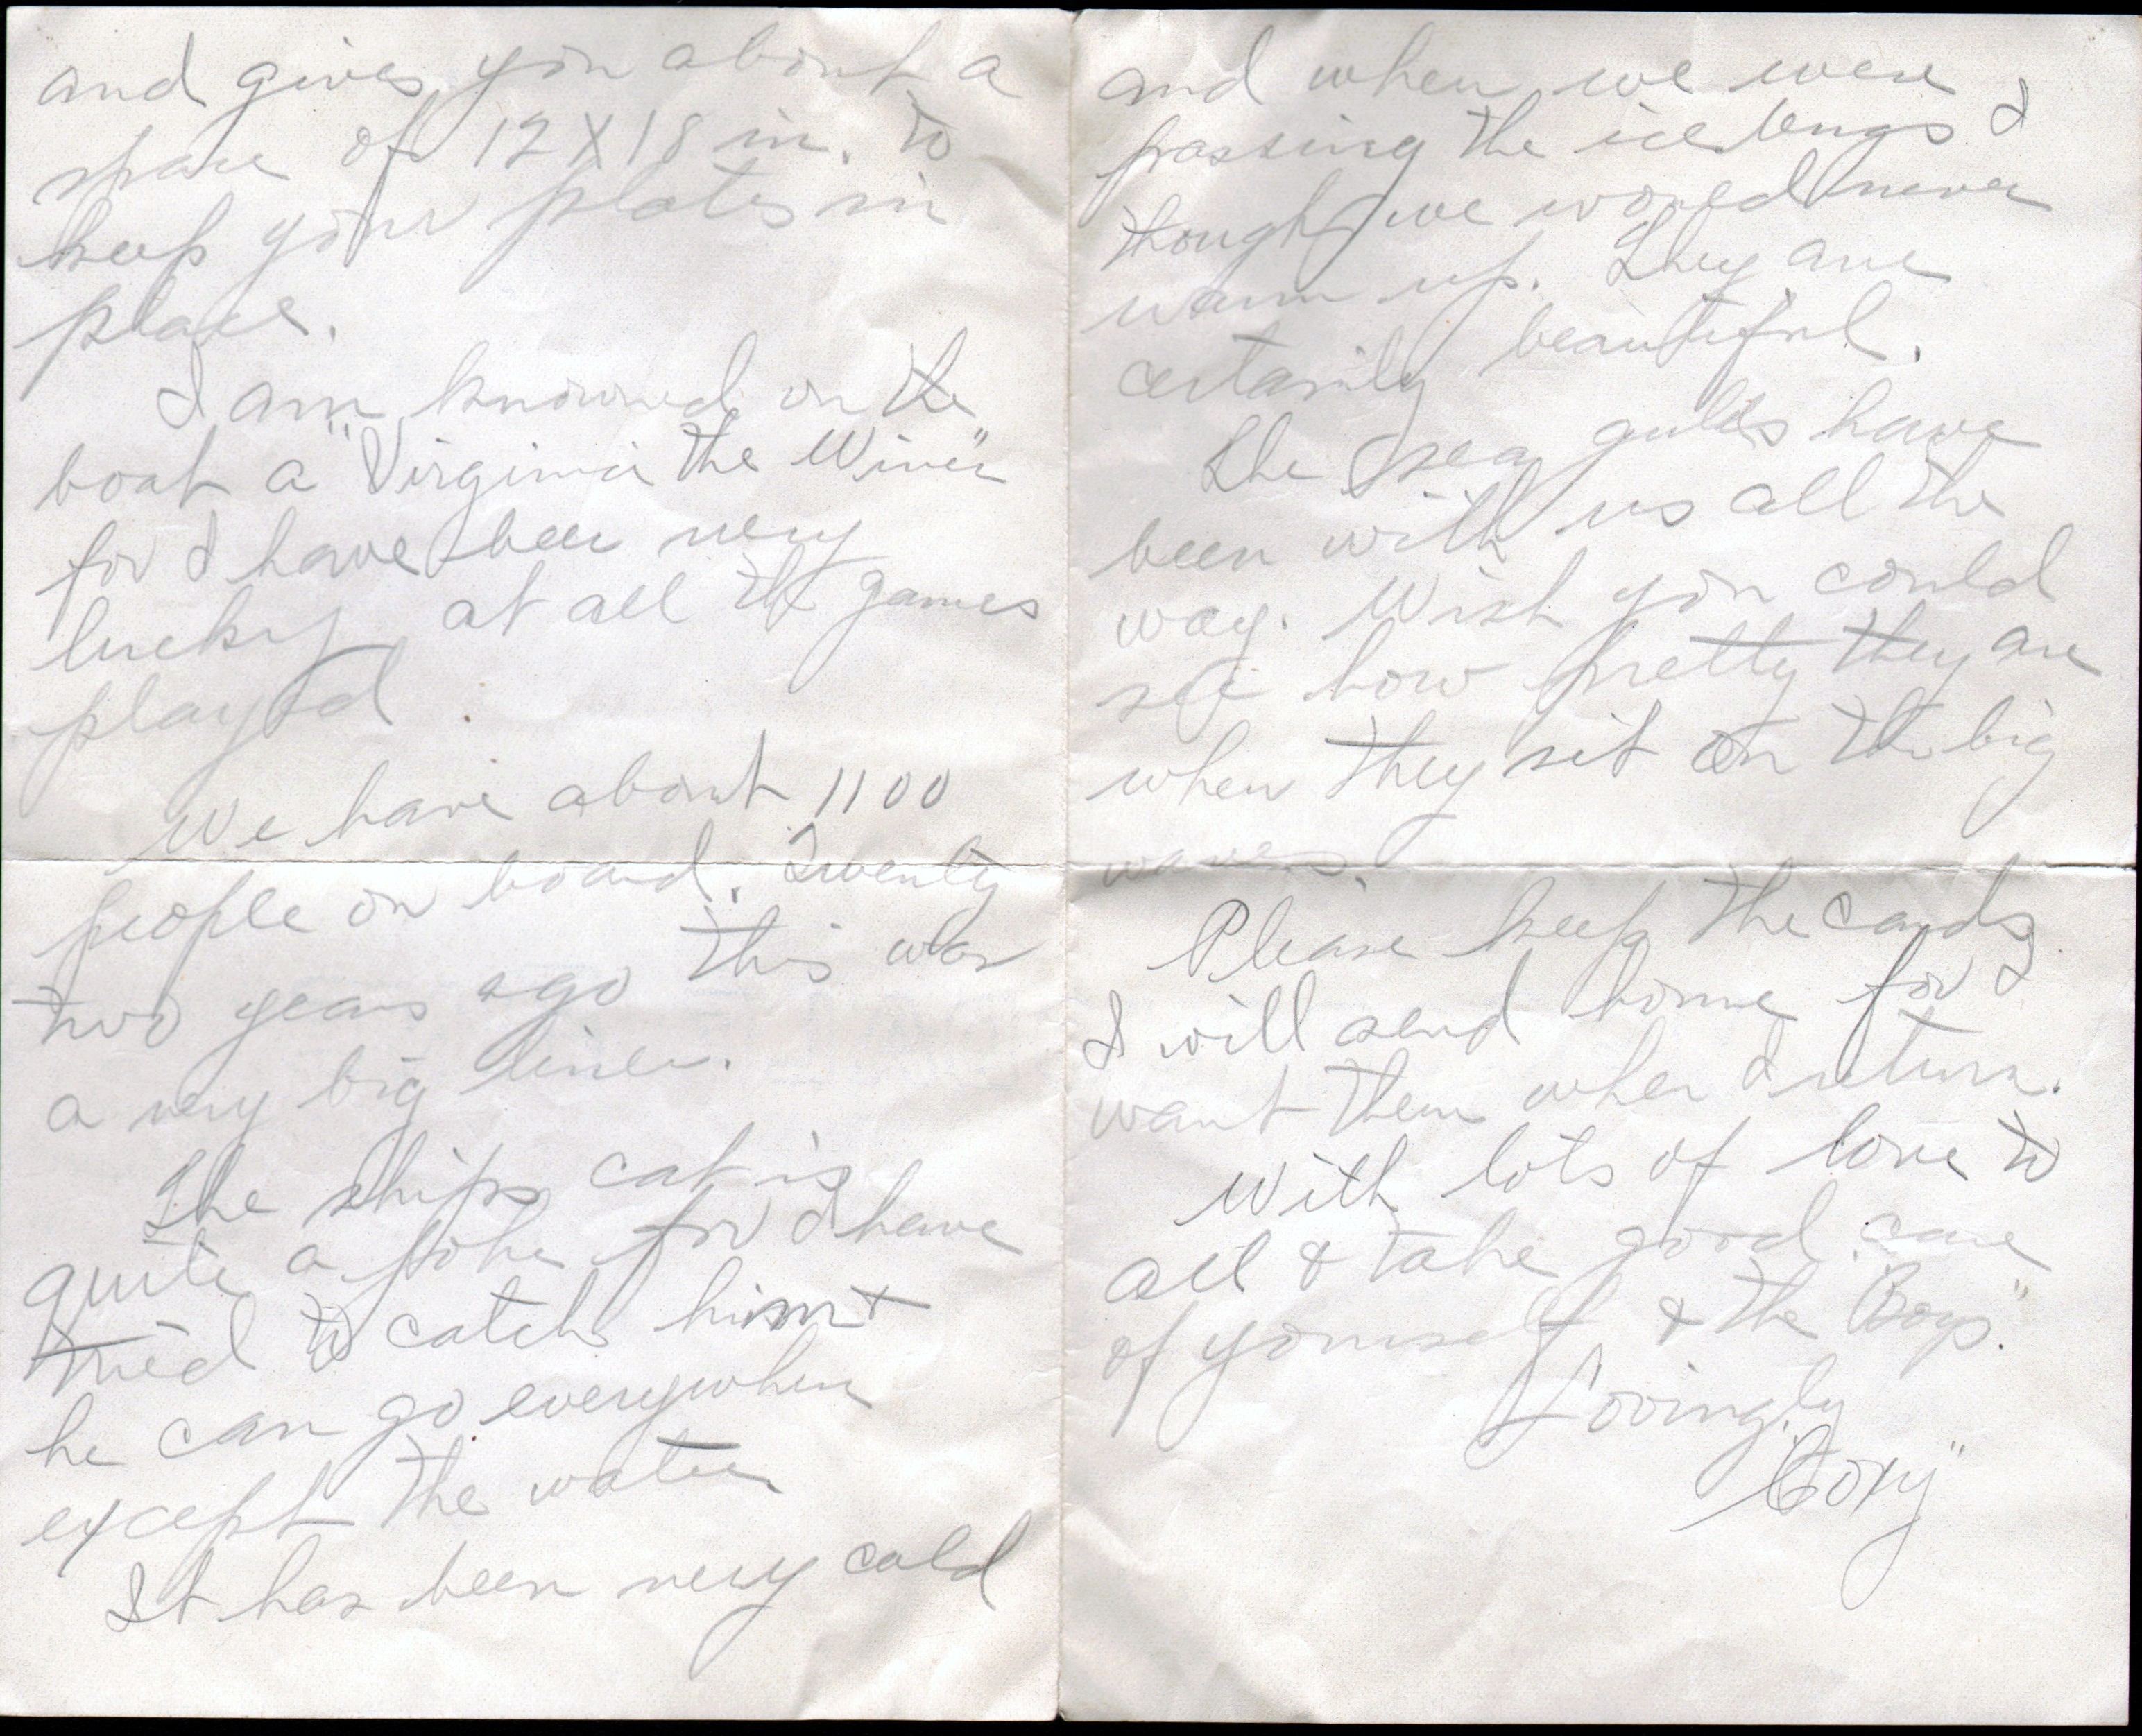 and gives you about a
space of 12 X 18 in. to
keep your plates in
place.
I am knowned on the
boat a "Virginia the Winer"
for I have been very
lucky at all the games
played.
We have about 1100
people on board. Twenty
two years ago this was
a very big liner.
The ships cat is
quite a joke for I have
tried to catch him &
he can go everywhere
except the water
It has been very cold
and when we were
passing the ice bergs I
thought we would never
warm up. They are
certainly beautiful.
The sea gulls have
been with us all the
way. Wish you could
see how pretty they are
when they sit on the big
waves.
Please keep the cards
I will send home for I
want them when I return.
With lots of love to
all & take good care
of yourself & the "Boys."
Lovingly